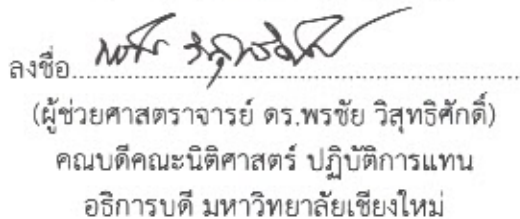 ลงชื่อ
(ผู้ช่วยศาสตราจารย์ ดร.พรชัย วิสุทธิศักดิ์)
คณบดีคณะนิติศาสตร์ ปฏิบัติการแทน
อธิการบดี มหาวิทยาลัยเชียงใหม่